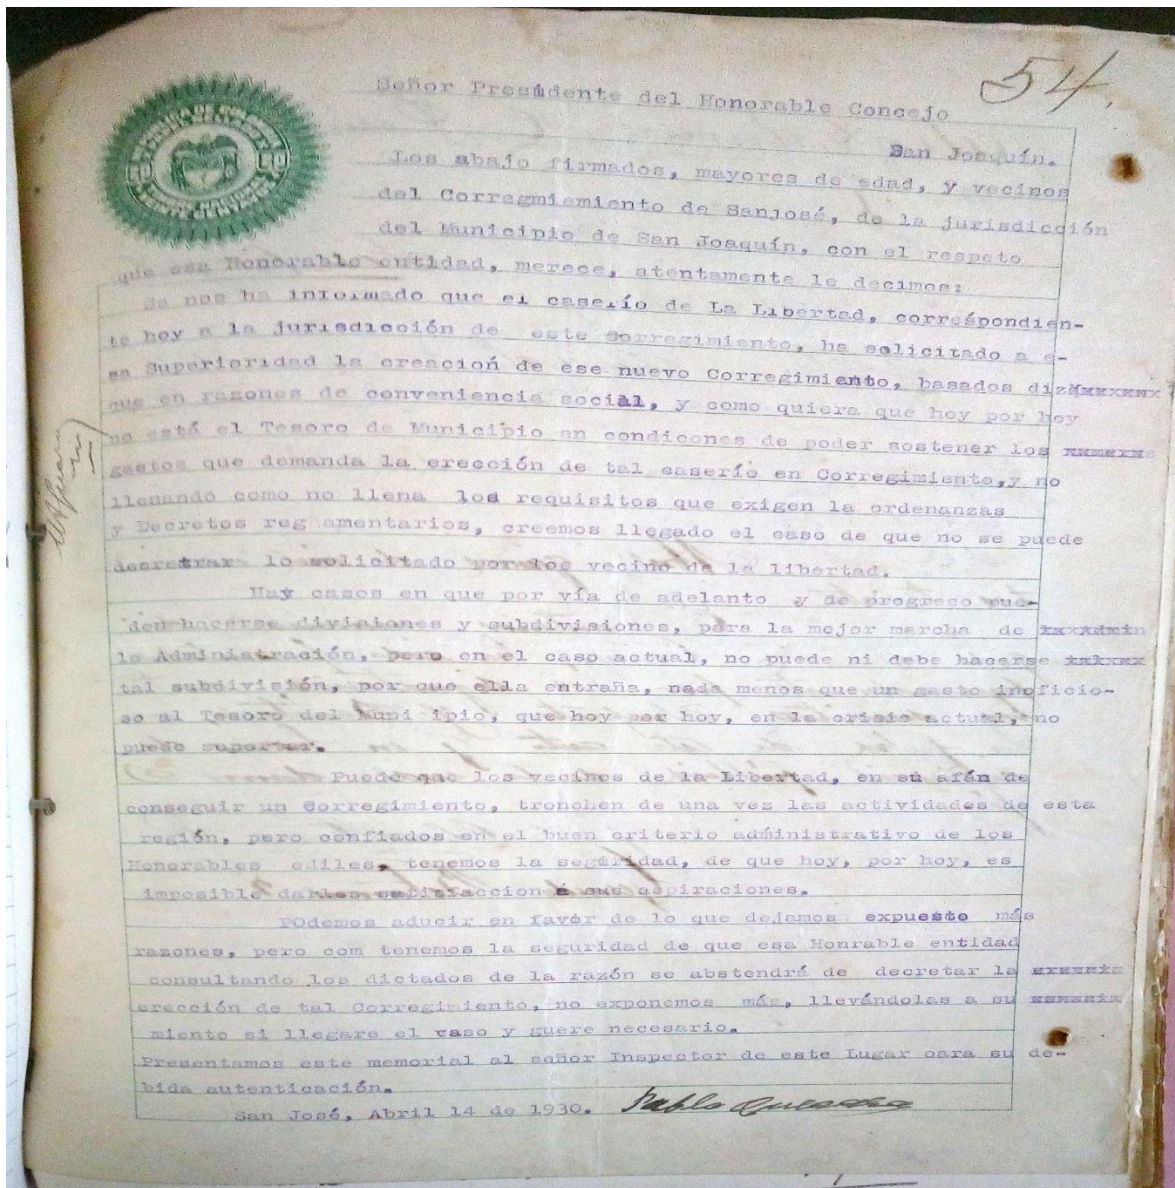 54.
Señor Presidente del Honorable Concejo
San Joaquín.
Los abajo firmados, mayores de edad, y vecinos
del Corregmiemiento de Sanjosé, de la jurisdicción
del Municipio de San Joaquín, con el respeto
que esa Honorable entidad, merece, atentamente le decimos:
Se nos ha informado que el caserío de La Libertad, correspondien-
te hoy a la jurisdicción de este Corregimiento, ha solicitado a e-
sa Superioridad la creación de ese nuevo Corregimiento, basados diz
que en razones de conveniencia social, y como quiera que hoy por hoy
no está el Tesoro de Municipio en condicones de poder sostener los
gastos que demanda la erección de tal caserío en Corregimiento,y no
llenando como no llena los requisitos que exigen la ordenanzas
y Decretos reg amentarios, creemos llegado el caso de que no se puede
decretrar lo solicitado por los vecino de la libertad.
Hay casos en que por vía de adelanto y de progreso pue-
den hacerse divisiones y subdivisiones, para la mejor marcha de
la Administración, pero en el caso actual, no puede ni debe hacerse
tal subdivisión, por que ella entraña, nada menos que un gasto inoficio-
so al Tesoro del Muni ipio, que hoy por hoy, en la crisis actual, no
puede suportar.
Puede que los vecinos de la Libertad, en sú afán de
conseguir un Corregimiento, tronchen de una vez las actividades de esta
región, pero confiados en el buen criterio administrativo de los
Honorables ediles, tenemos la seguridad, de que hoy, por hoy, es
imposible darles satisfaccion á sus aspiraciones.
POdemos aducir en favor de lo que dejamos expuesto más
razones, pero com tenemos la seguridad de que esa Honrable entidad
consultando los dictados de la razón se abstendrá de decretar la
erección de tal Corregimiento, no exponemos más, llevándolas a su
miento si llegare el caso y guere necesario.
Presentamos este memorial al señor Inspector de este Lugar oara su de-
bida autenticación.
San José, Abril 14 de 1930. Pablo Quesada